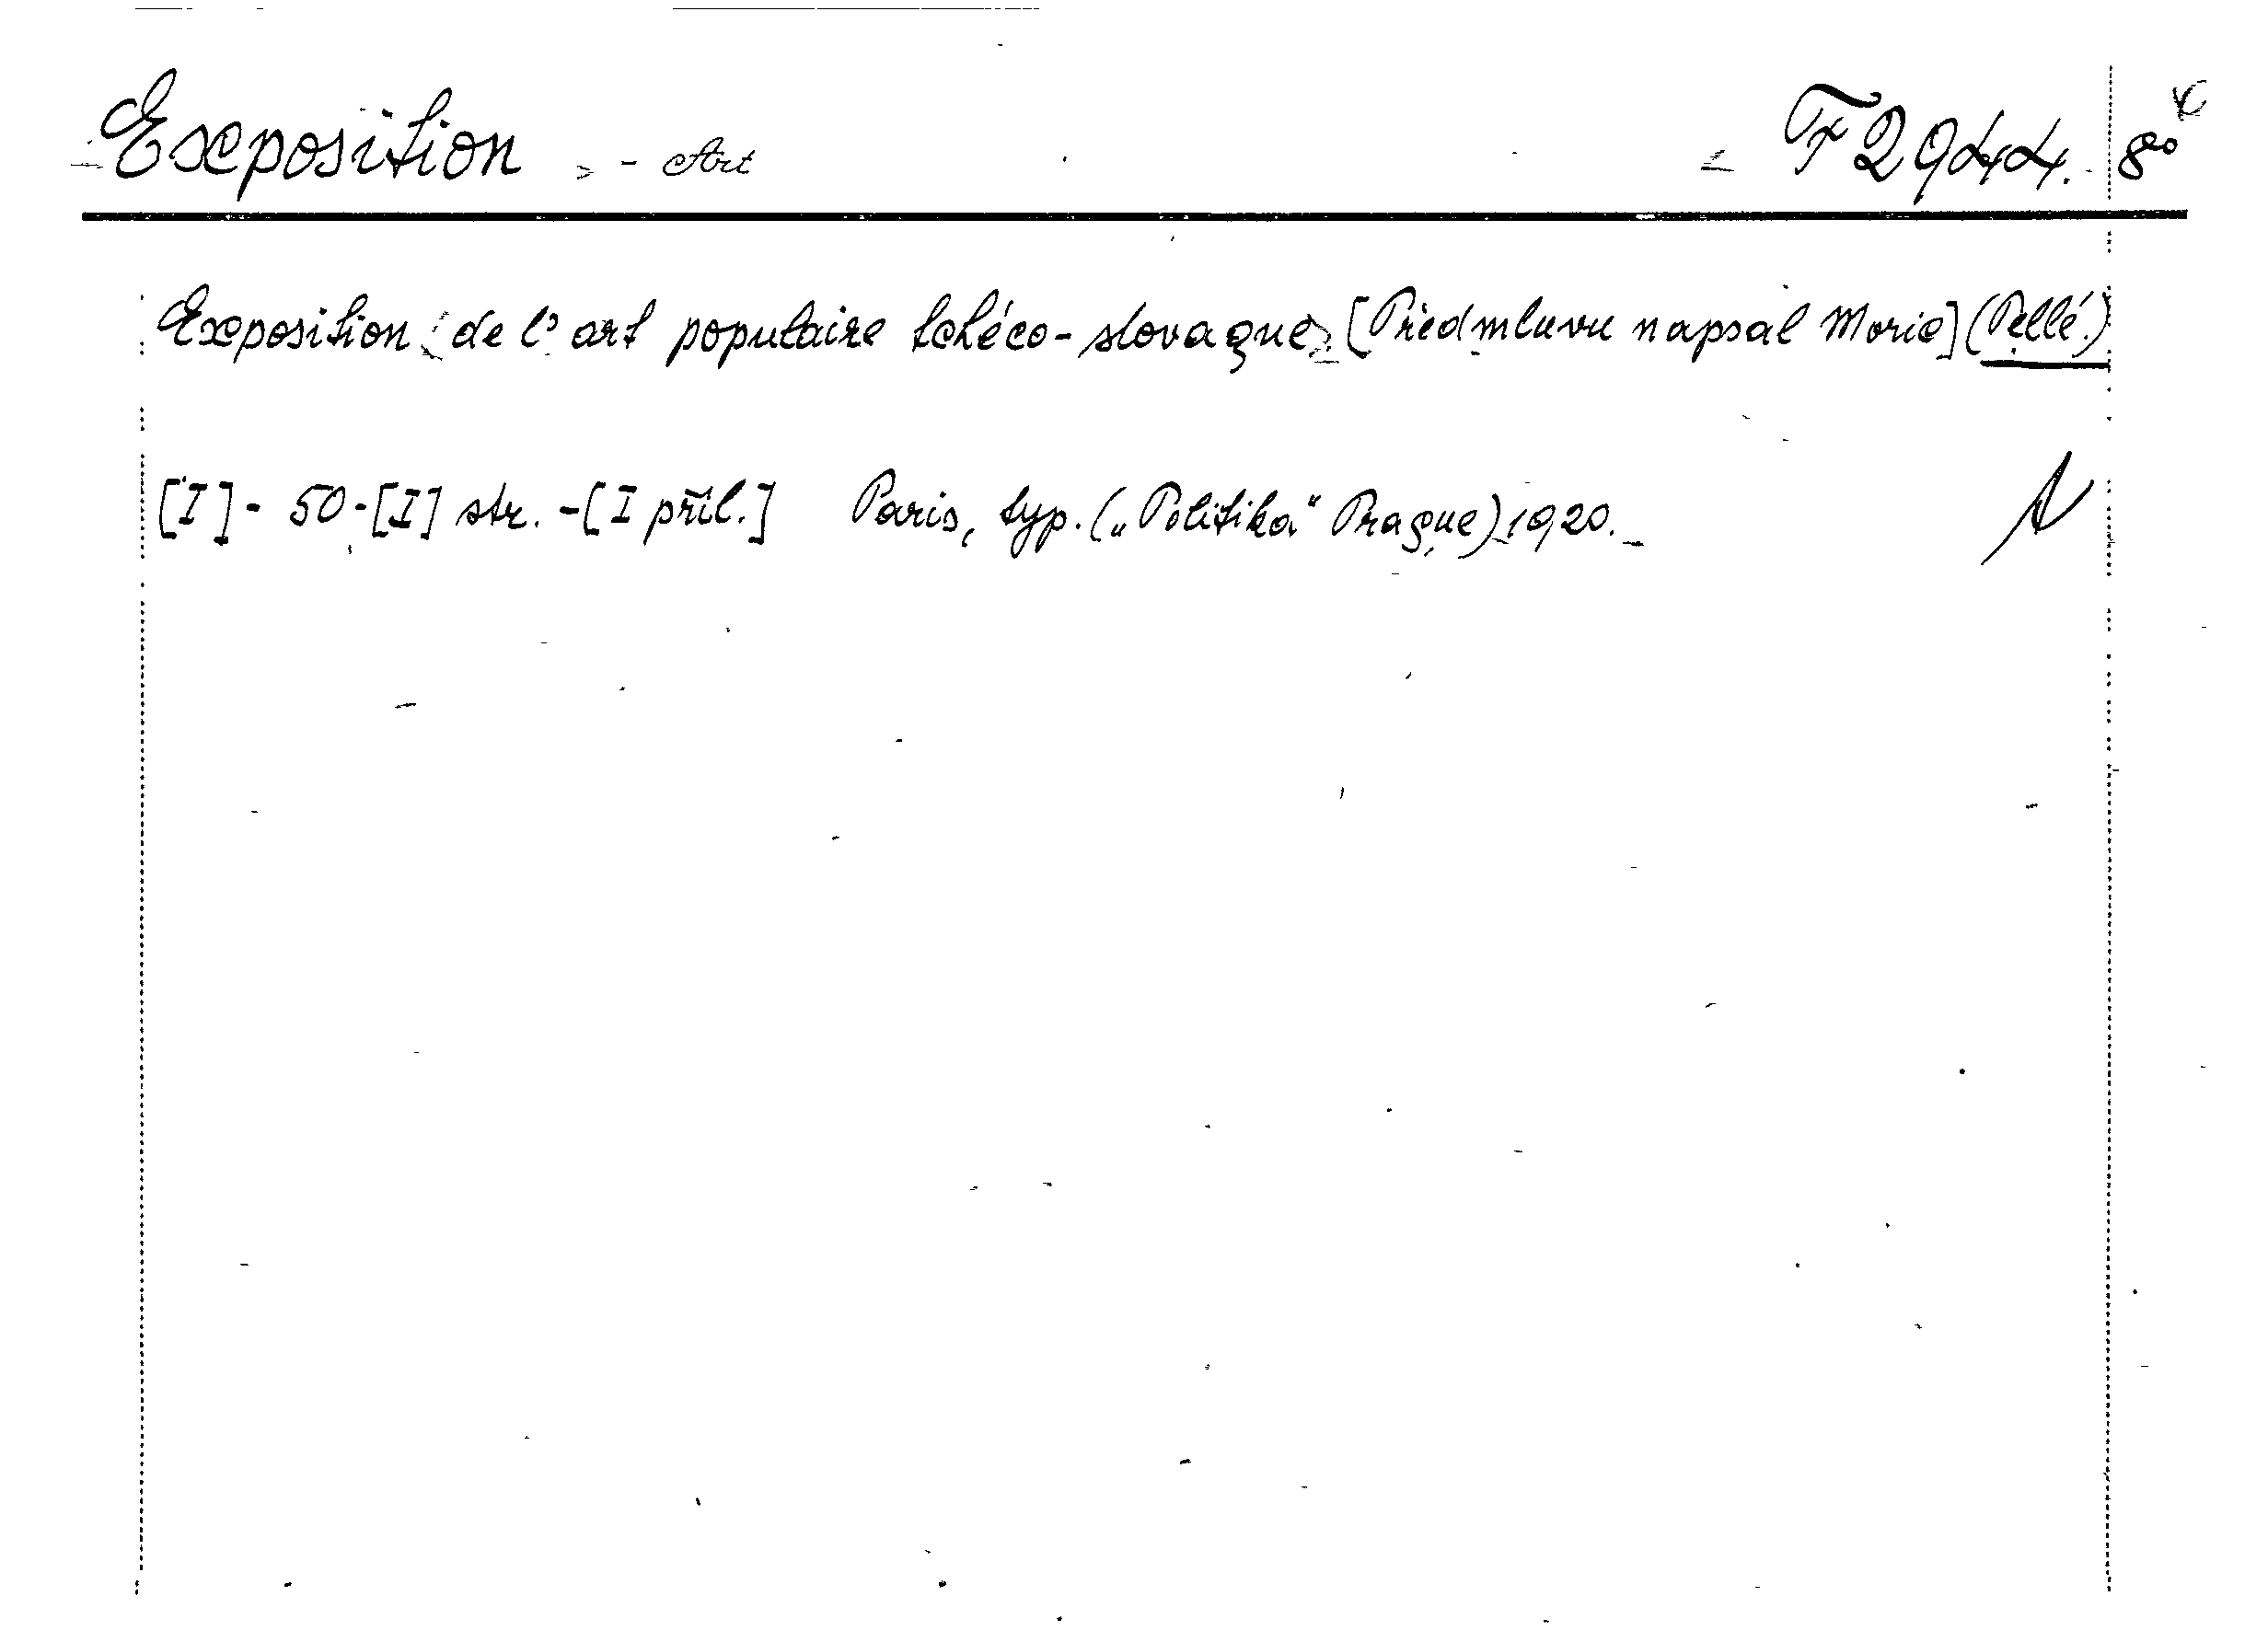 Exposition - Art F 2944. 8°
Exposition de l'art populaire tchéco-slovaque [Předmluvu napsal Moric] (Pellé.)
[I] - 50 - [I] str. - [I příl.] Paris, typ. („Politika“ Prague) 1920.